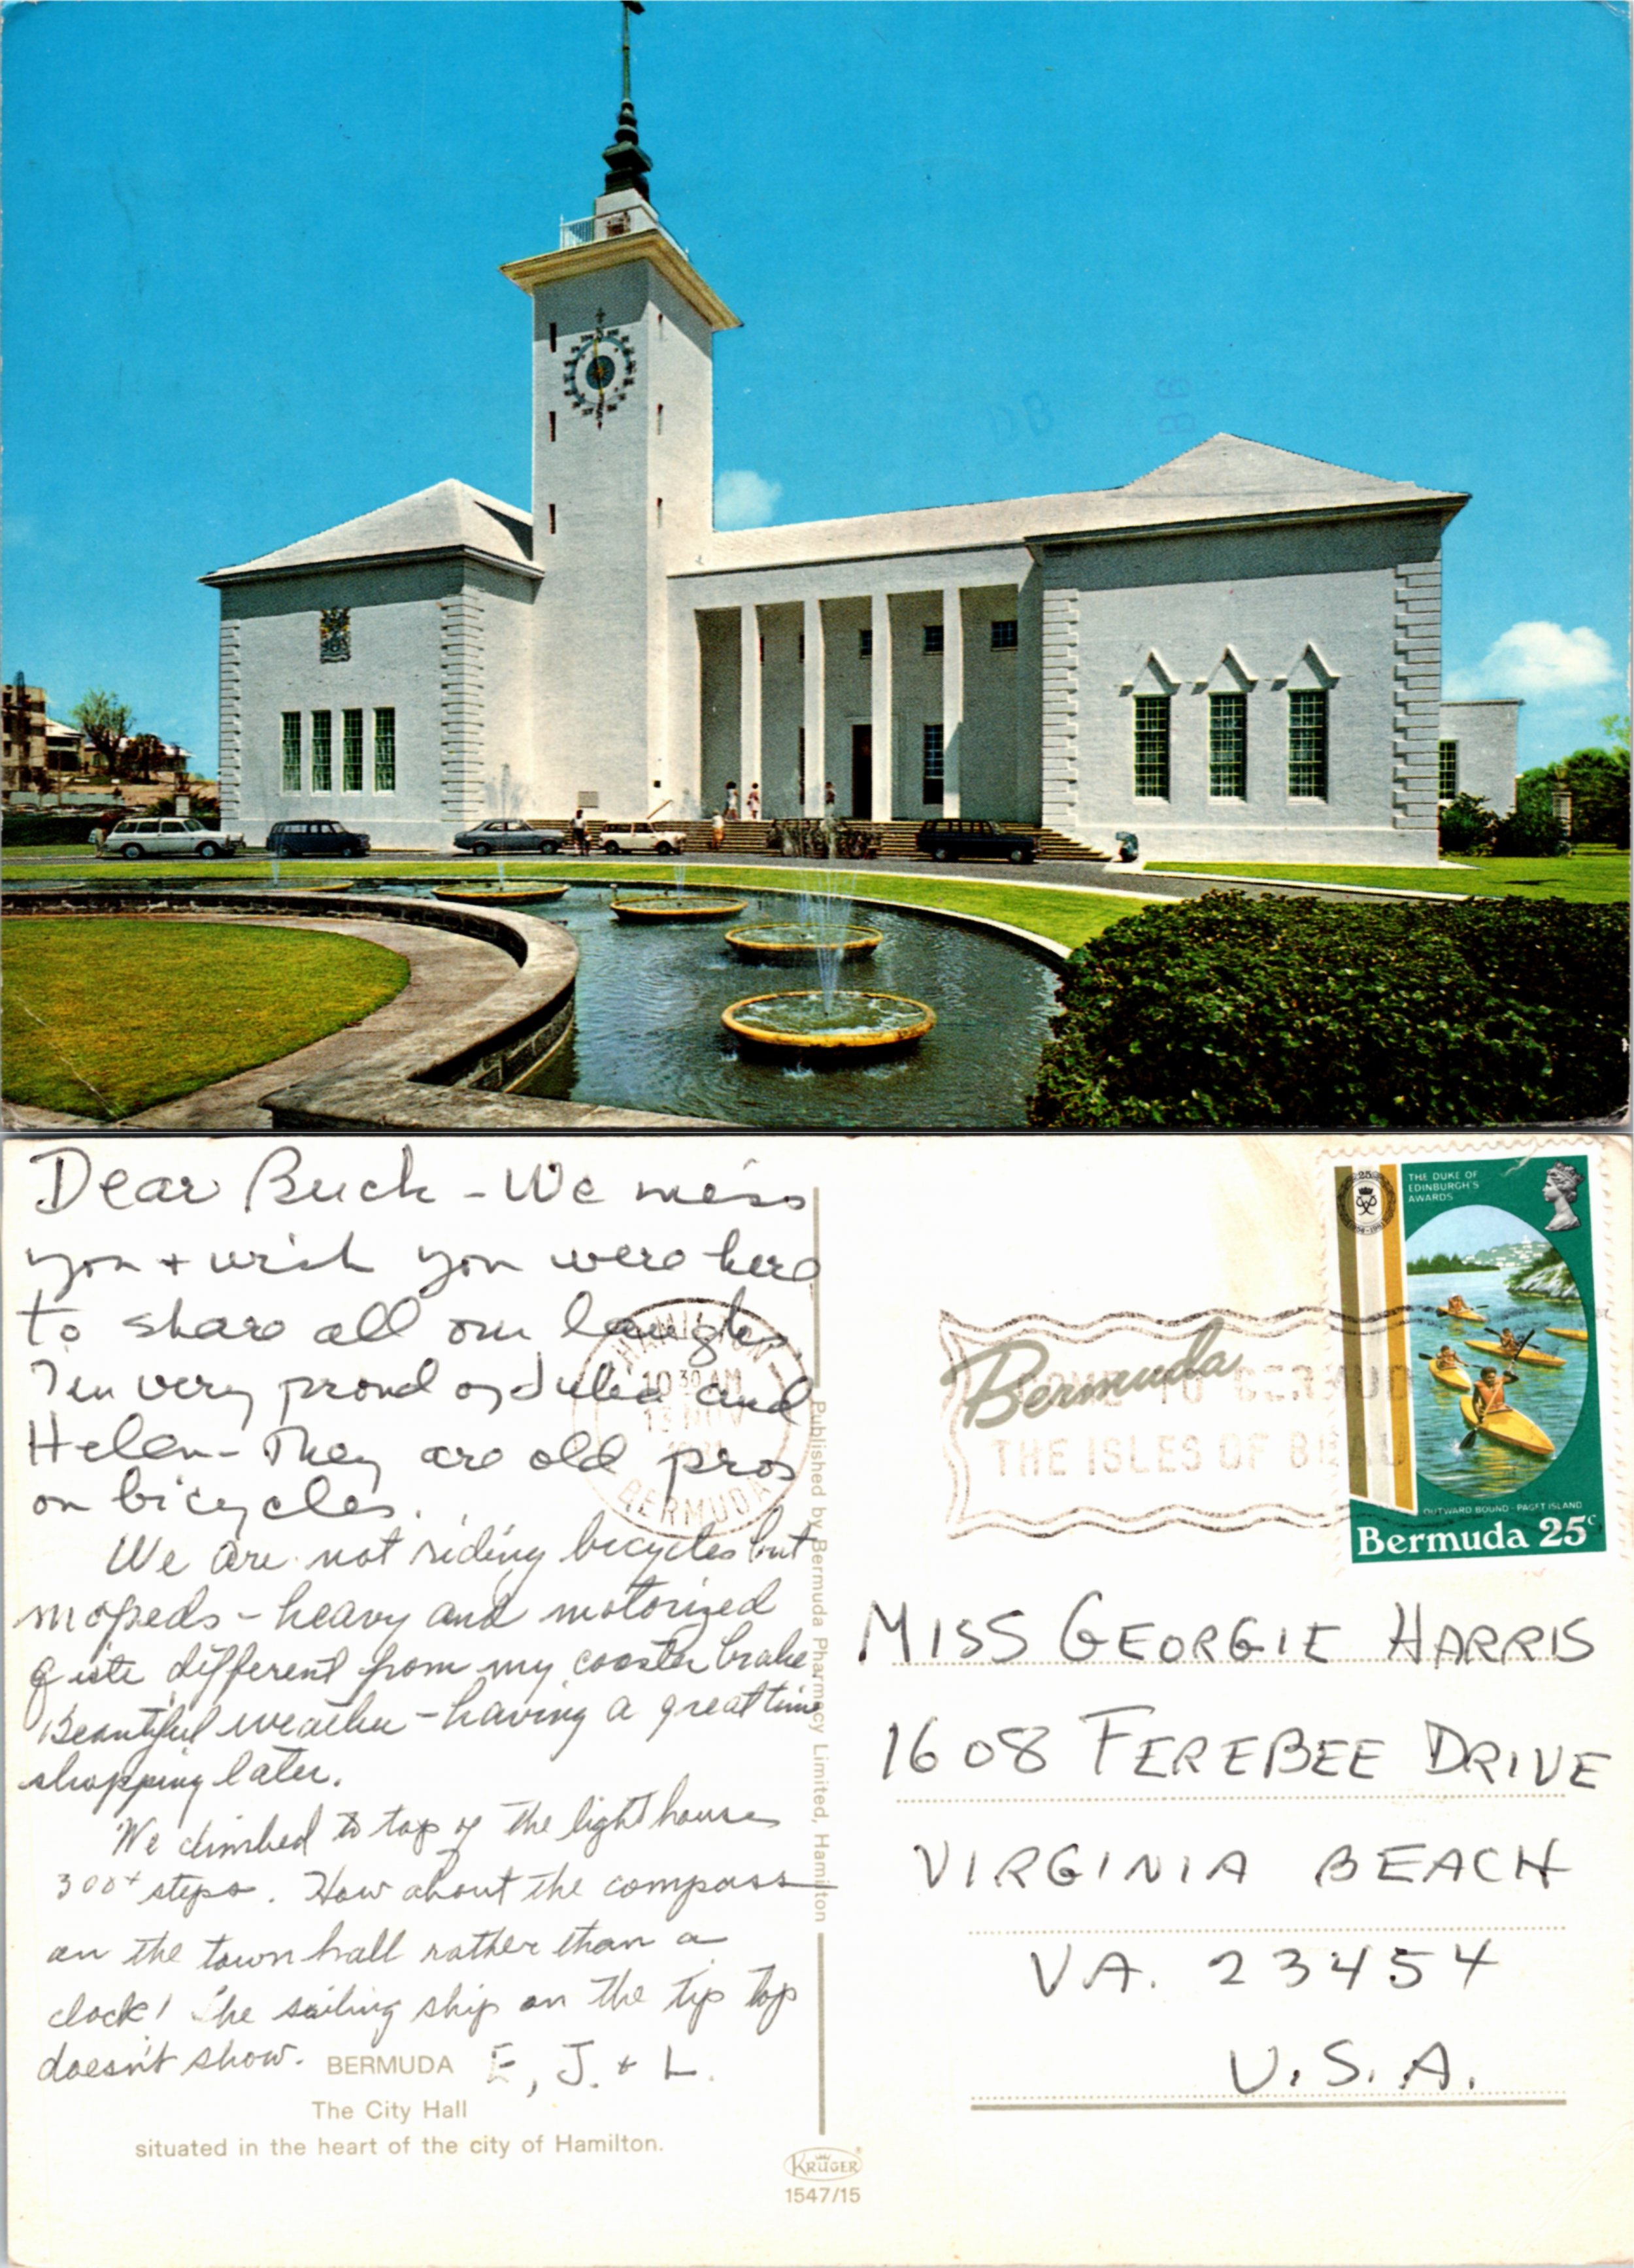 Dear Buck - We miss
you + wish you were here
to share all our laughs.
I'm very proud of Julia and
Helen - They are old pros
on bicycles.
We are not riding bicycles but
mopeds - heavy and motorized
quite different from my coaster brake
Beautiful weather - having a great time
shopping later.
We climbed to top of the lighthouse
300+ steps. How about the compass
on the town hall rather than a
clock! The sailing ship on the tip top
doesn't show.
E, J. + L.
BERMUDA
The City Hall
situated in the heart of the city of Hamilton.
HAMILTON
10 30 AM
13 NOV
BERMUDA
Published by Bermuda Pharmacy Limited, Hamilton
KRÜGER
1547/15
Bermuda
COME TO BERMUD
THE ISLES OF
25
THE DUKE OF
EDINBURGH'S
AWARDS
OUTWARD BOUND - PAGET ISLAND
Bermuda 25c
MISS GEORGIE HARRIS
1608 FEREBEE DRIVE
VIRGINIA BEACH
VA. 23454
U.S.A.